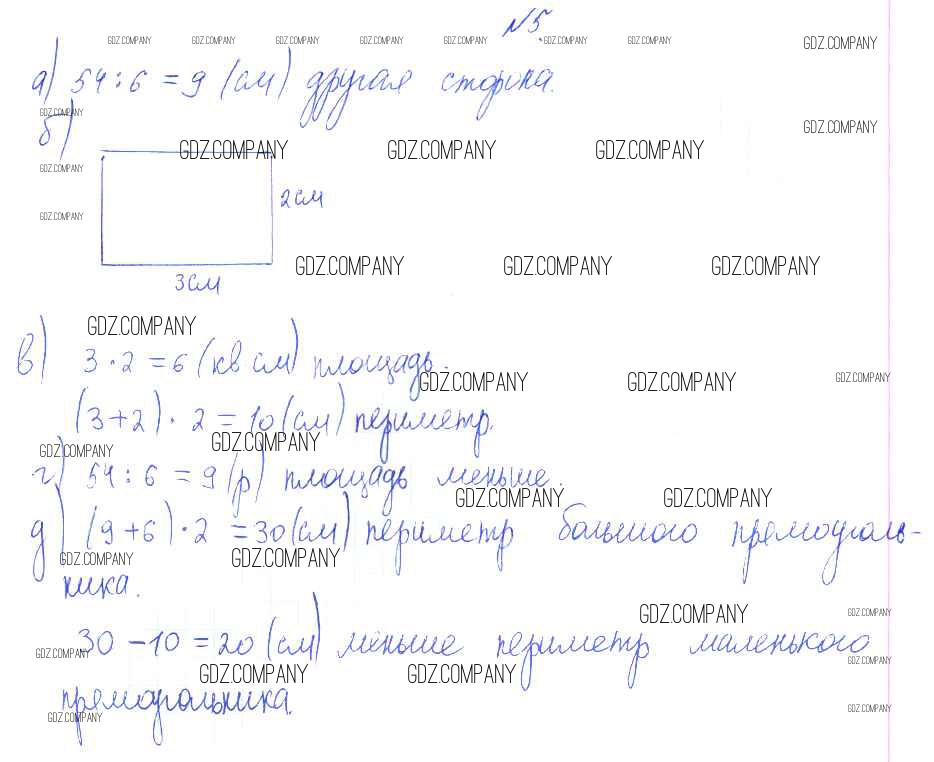 №5
GDZ.COMPANY GDZ.COMPANY GDZ.COMPANY GDZ.COMPANY GDZ.COMPANY GDZ.COMPANY GDZ.COMPANY GDZ.COMPANY
а) 54 : 6 = 9 (см) другая сторона.
GDZ.COMPANY GDZ.COMPANY
б)
GDZ.COMPANY GDZ.COMPANY GDZ.COMPANY
GDZ.COMPANY
2 см
GDZ.COMPANY
GDZ.COMPANY GDZ.COMPANY GDZ.COMPANY
3 см
GDZ.COMPANY
в) 3 · 2 = 6 (кв см) площадь.
GDZ.COMPANY GDZ.COMPANY GDZ.COMPANY
(3+2) · 2 = 10 (см) периметр.
GDZ.COMPANY GDZ.COMPANY
г) 54 : 6 = 9 (р) площадь меньше.
GDZ.COMPANY GDZ.COMPANY
д) (9+6) · 2 = 30 (см) периметр большого прямоуголь-
GDZ.COMPANY GDZ.COMPANY
ника.
GDZ.COMPANY GDZ.COMPANY
30 - 10 = 20 (см) меньше периметр маленького
GDZ.COMPANY GDZ.COMPANY
GDZ.COMPANY GDZ.COMPANY
прямоугольника.
GDZ.COMPANY GDZ.COMPANY